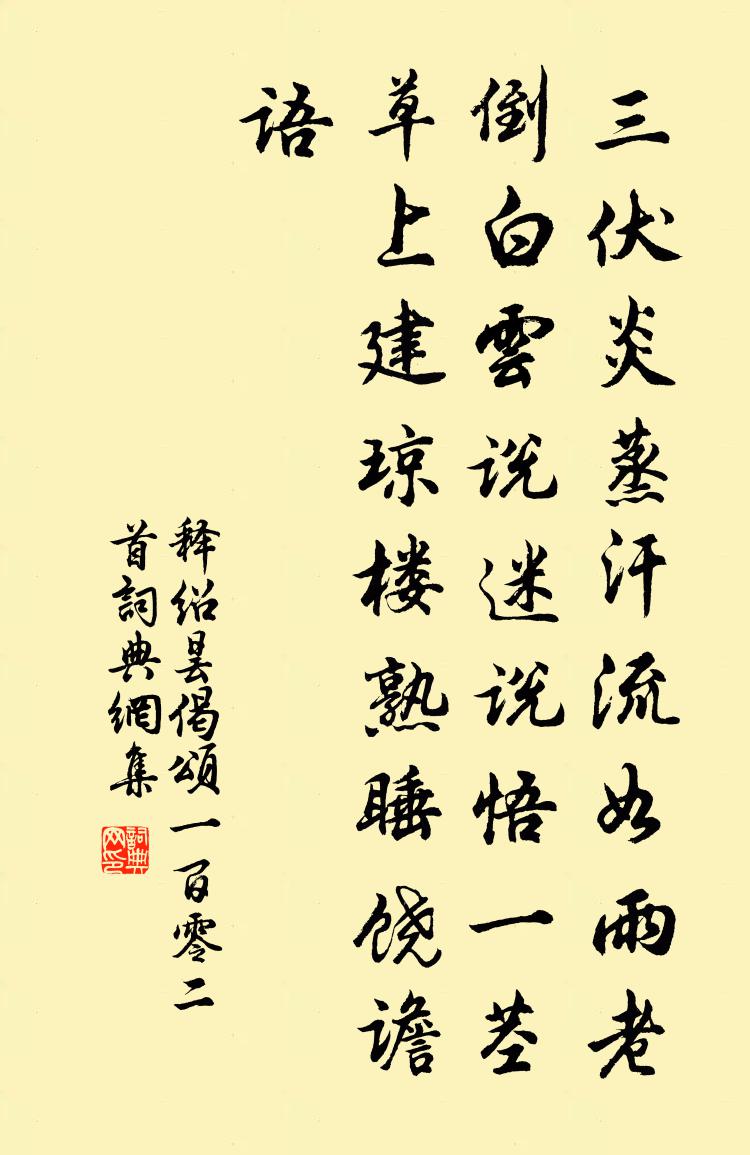 三伏炎蒸汗流如雨老
倒白雲说迷说悟一茎
草上建琼楼熟睡饶谵
语
释绍昙偈頌一百零二
首詞典網集
詞典网印